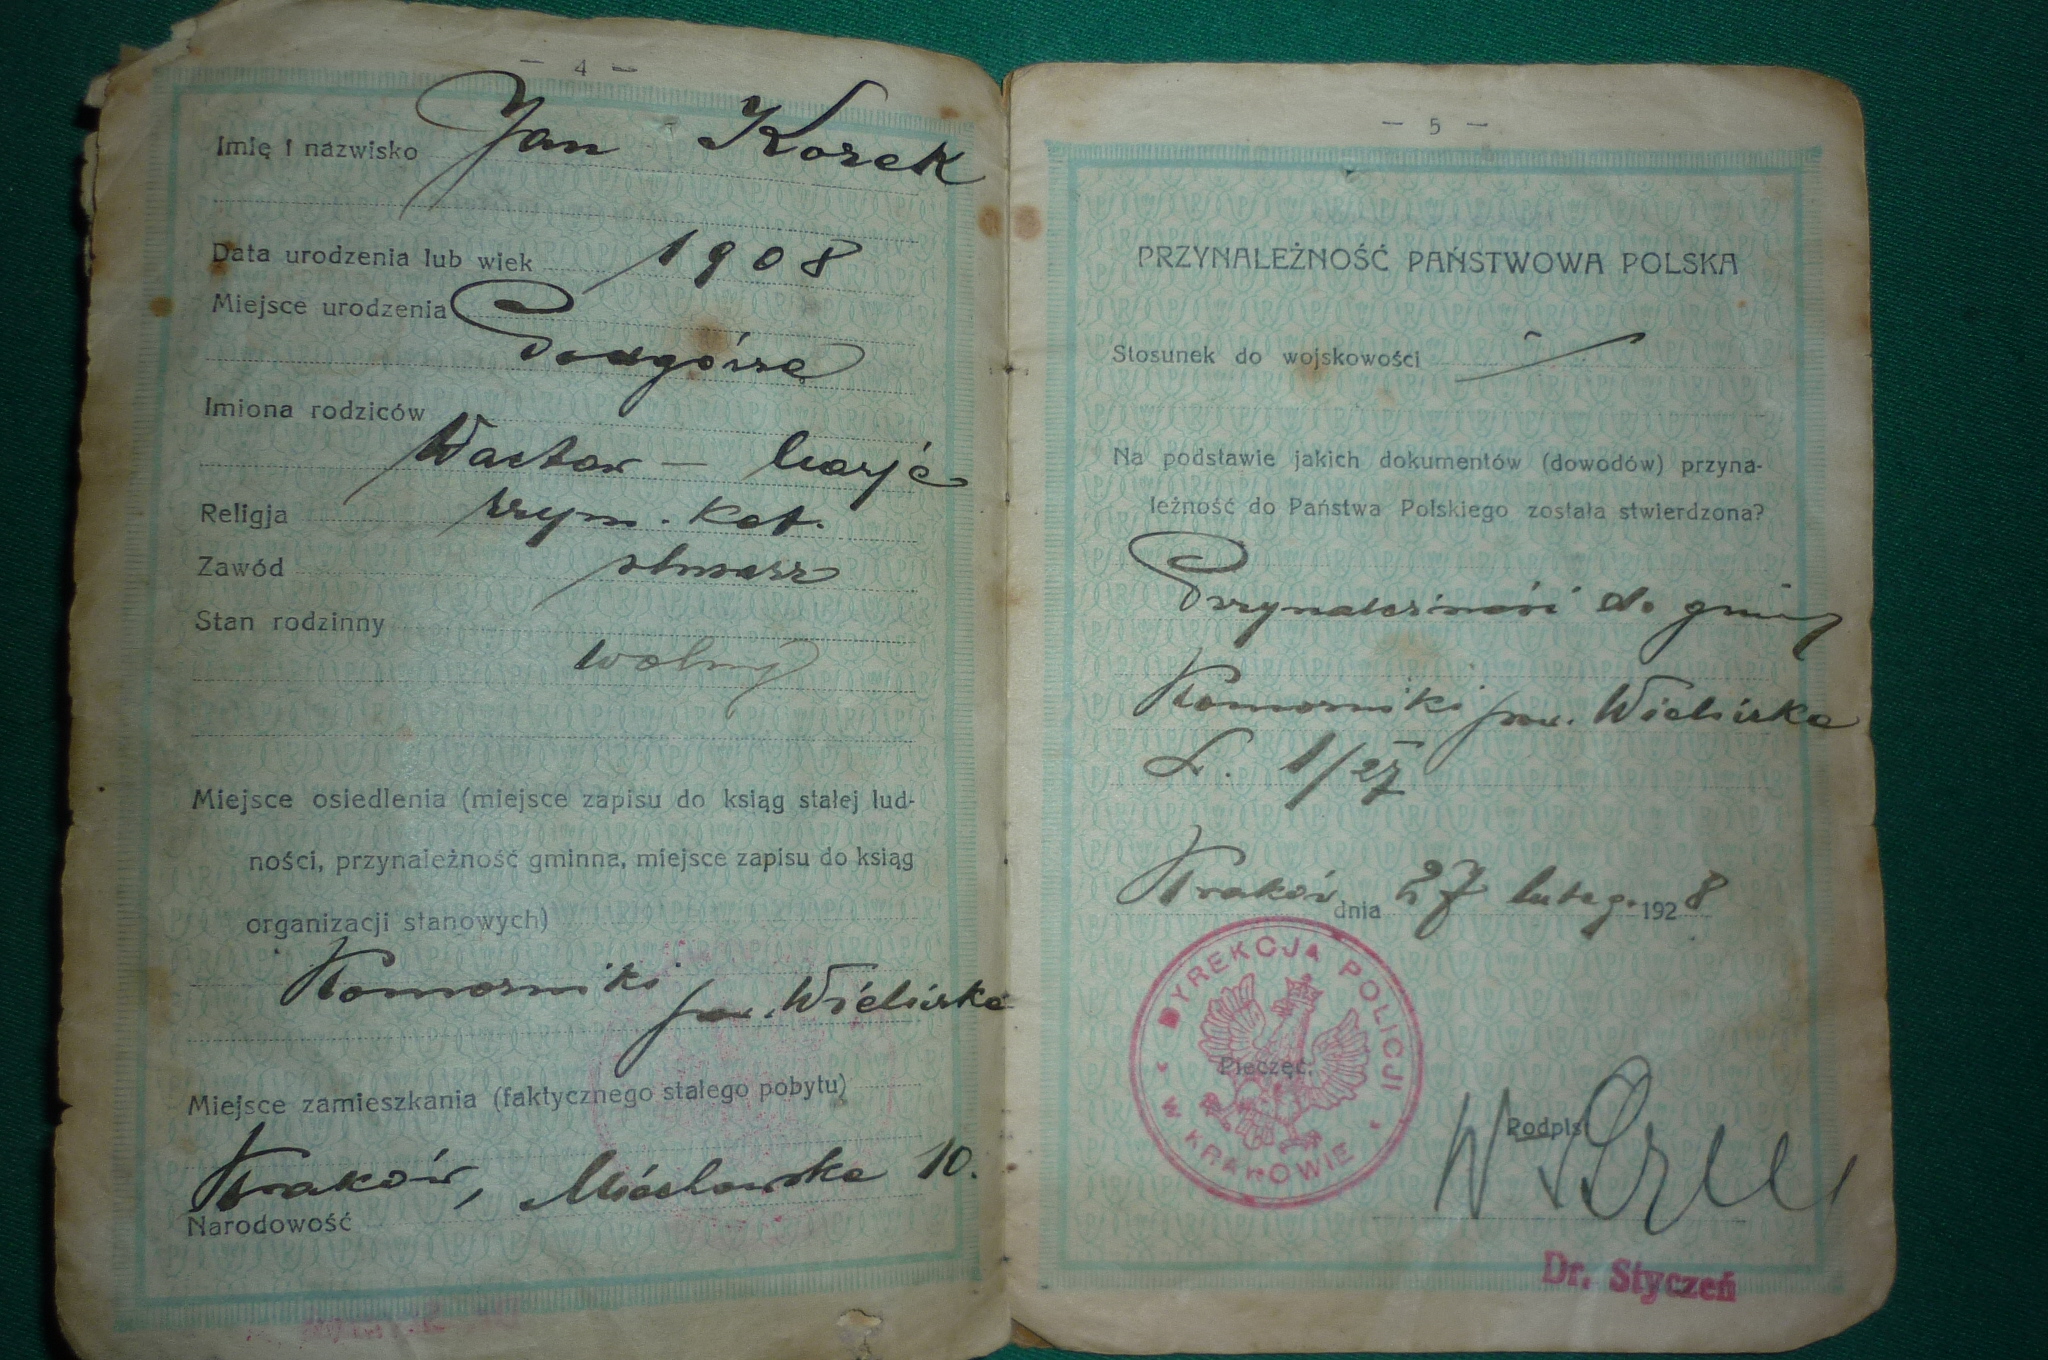 — 4 —
Imię i nazwisko Jan Kozek
Data urodzenia lub wiek 1908
Miejsce urodzenia
Podgórze
Imiona rodziców
Wacław — Marja
Religja rzym. kat.
Zawód ślusarz
Stan rodzinny
wolny
Miejsce osiedlenia (miejsce zapisu do ksiąg stałej lud-
ności, przynależność gminna, miejsce zapisu do ksiąg
organizacji stanowych)
Komorniki pow. Wieliczka
Miejsce zamieszkania (faktycznego stałego pobytu)
Kraków, 10.
Narodowość
— 5 —
PRZYNALEŻNOŚĆ PAŃSTWOWA POLSKA
Stosunek do wojskowości
Na podstawie jakich dokumentów (dowodów) przyna-
leżność do Państwa Polskiego została stwierdzona?
Przynależność do gminy
Komorniki pow. Wieliczka
L. 1/27
Kraków dnia 27 lutego 1928
DYREKCJA POLICJI W KRAKOWIE
Pieczęć:
Podpis:
Dr. Styczeń